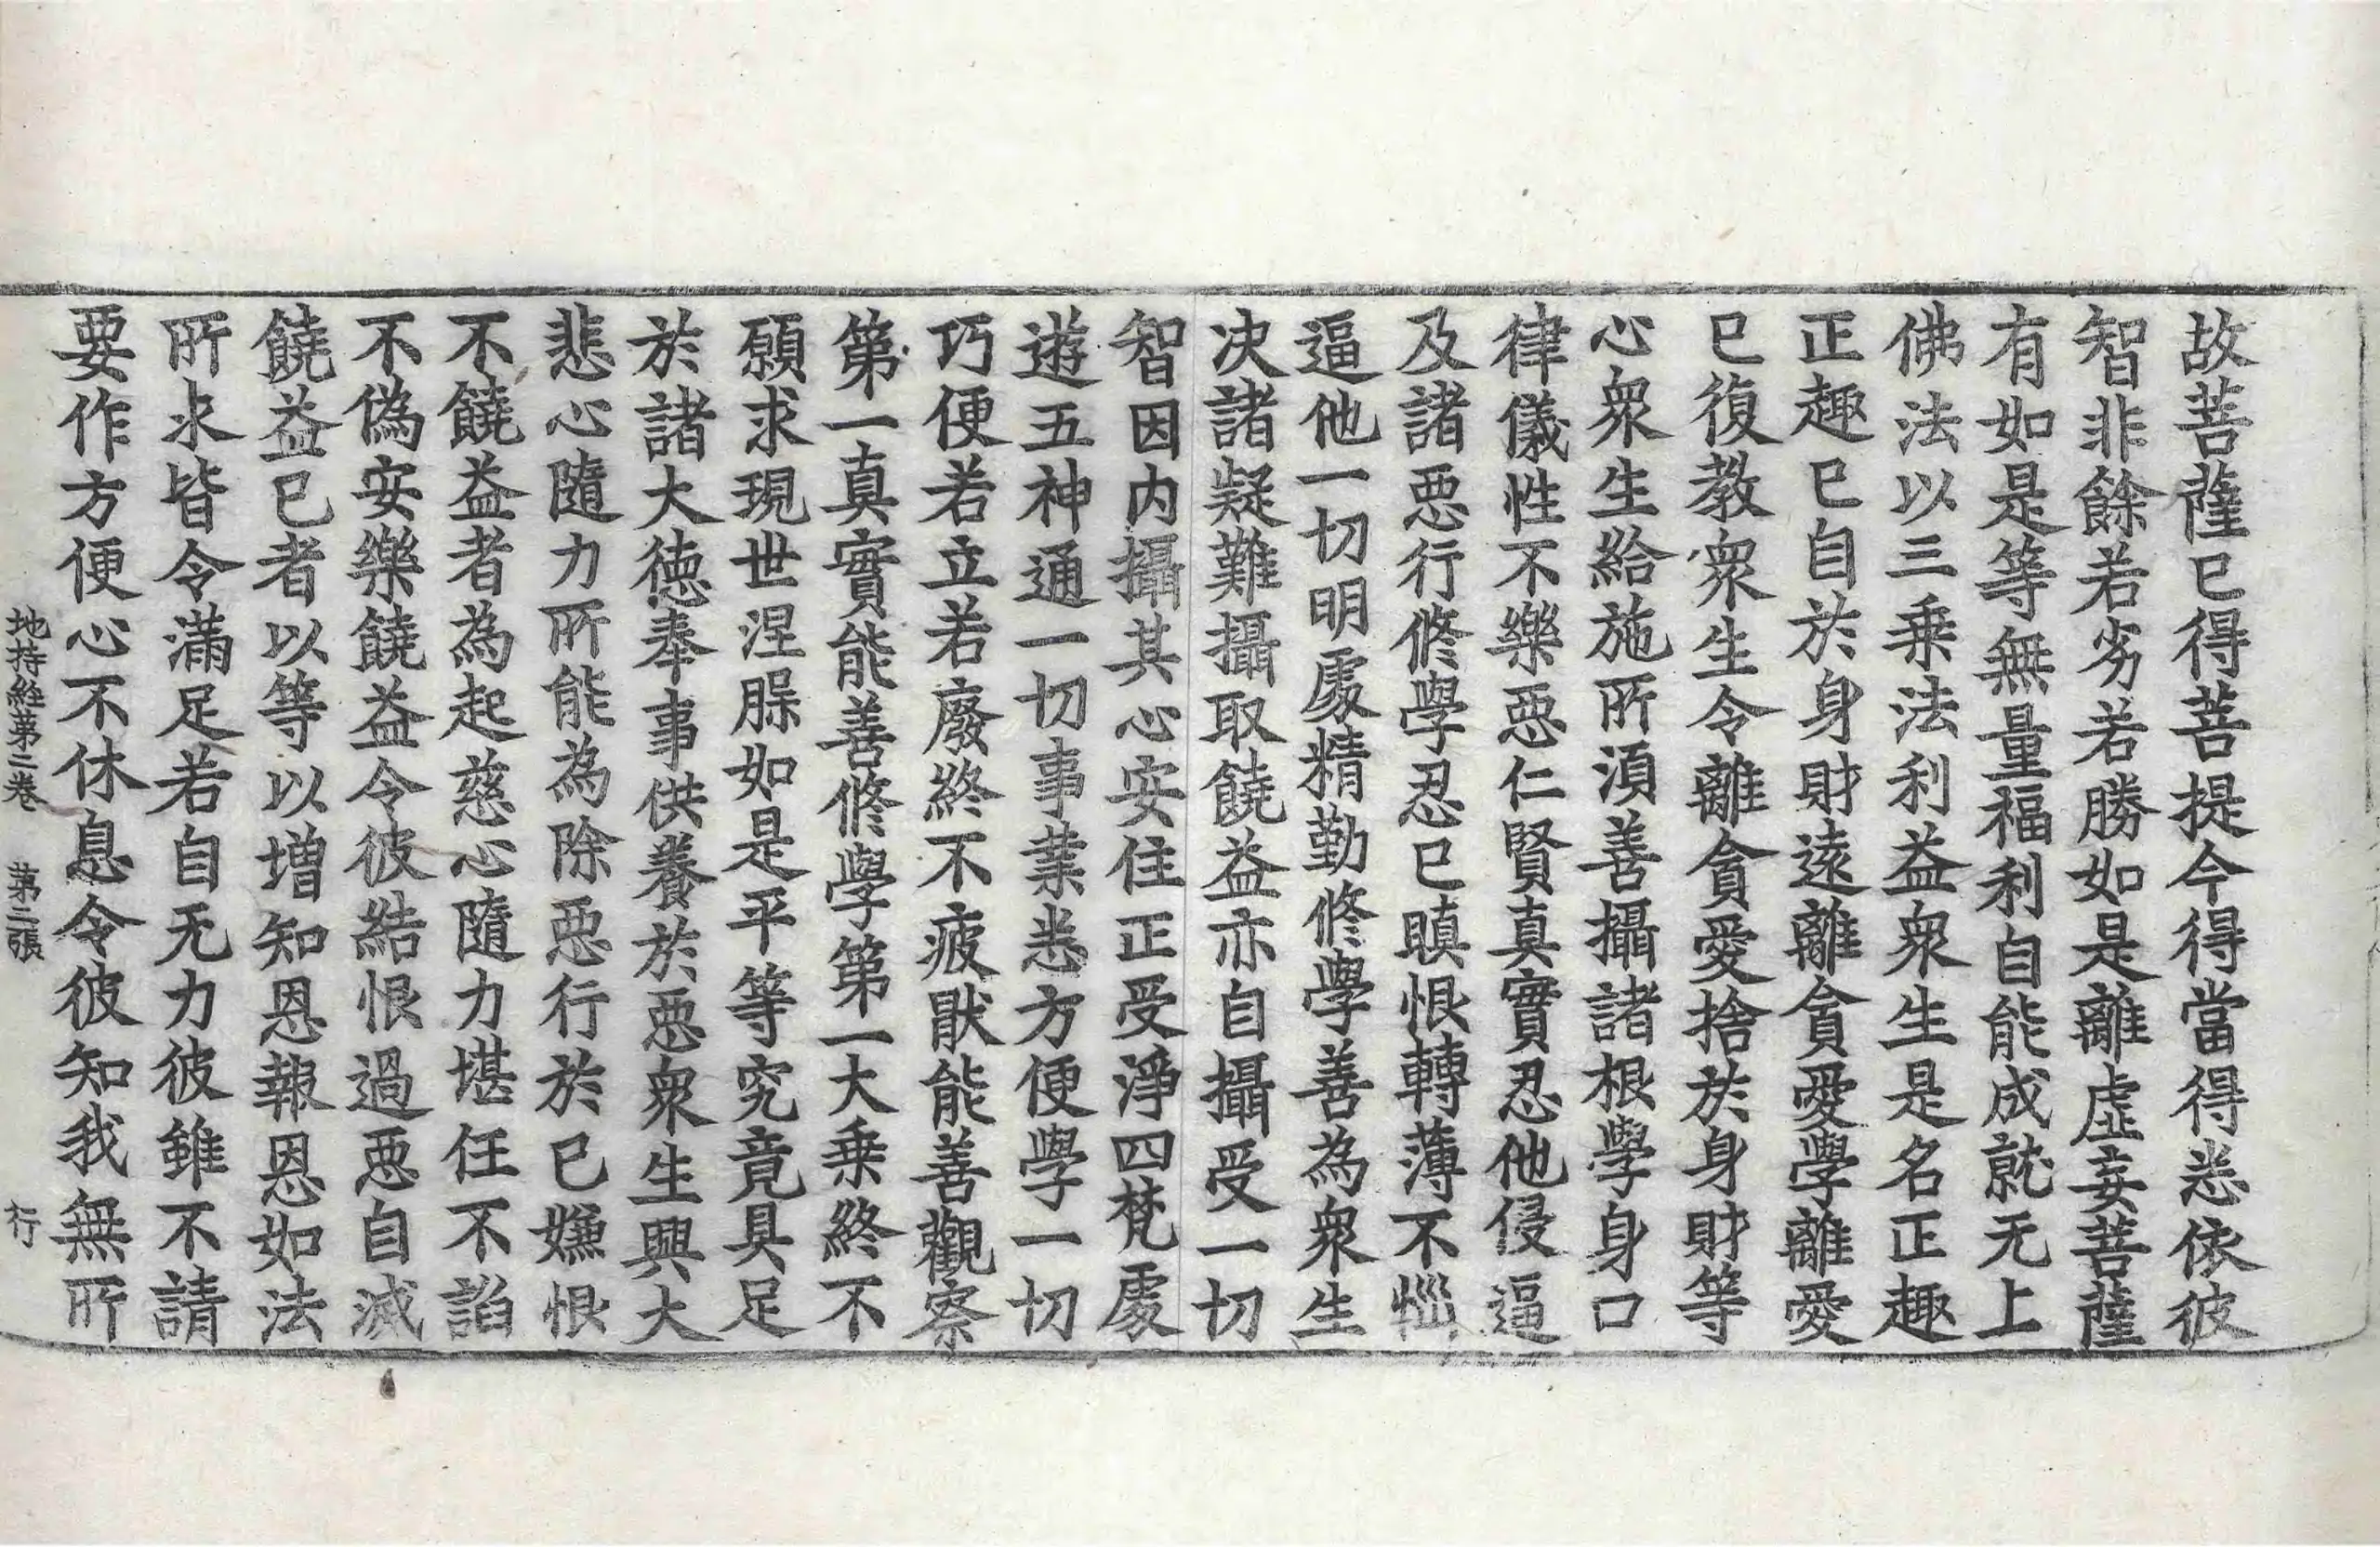 故菩薩已得菩提今得當得悉依彼
智非餘若劣若勝如是離虛妄菩薩
有如是等無量福利自能成就无上
佛法以三乗法利益衆生是名正趣
正趣已自於身財遠離貪愛學離愛
已復教衆生令離貪愛捨於身財等
心衆生給施所湏善攝諸根學身口
律儀性不樂惡仁賢真實忍他侵逼
及諸惡行修學忍已瞋恨轉薄不惱
逼他一切明處精勤修學善為衆生
决諸疑難攝取饒益亦自攝受一切
智因内攝其心安住正受淨四梵處
遊五神通一切事業悉方便學一切
巧便若立若廢終不疲猒能善觀察
第一真實能善修學第一大乗終不
願求現世涅脲如是平等究竟具足
於諸大徳奉事供養於惡衆生興大
悲心隨力所能為除惡行於已嫌恨
不饒益者為起慈心隨力堪任不諂
不偽安樂饒益令彼結恨過惡自滅
饒益已者以等以増知恩報恩如法
所求皆令滿足若自无力彼雖不請
要作方便心不休息令彼知我無所
地持經第二卷 第三張 行